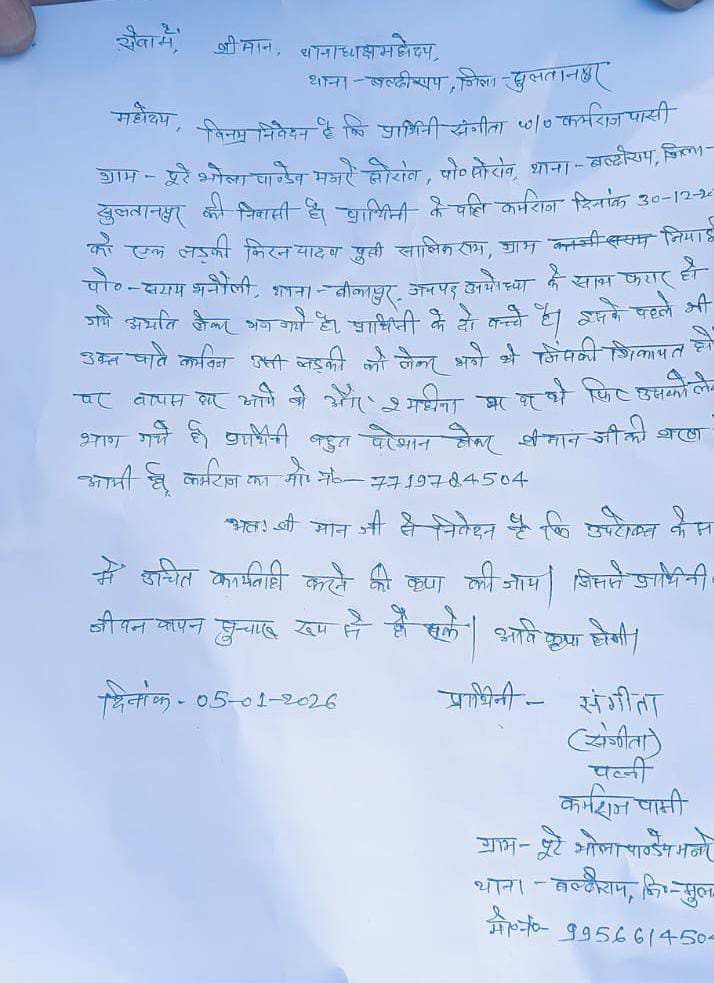 सेवा में, श्री मान, थानाध्यक्ष महोदय,
थाना - बल्दीराय, जिला - सुलतानपुर
महोदय, विनम्र निवेदन है कि प्रार्थिनी संगीता w/o कर्मराज पासी
ग्राम - पूरे भोला पाण्डेय मजरे सोरांव, पो० सोरांव, थाना - बल्दीराय, जिला -
सुलतानपुर की निवासी है। प्रार्थिनी के पति कर्मराज दिनांक 30-12-
को एक लड़की किरन यादव पुत्री सालिकराम, ग्राम
पो० - थाना - बीकापुर, जनपद अयोध्या के साथ फरार हो
गये अर्थात लेकर भाग गये है। प्रार्थिनी के दो बच्चे है। इसके पहले भी
उक्त उसी लड़की को लेकर भगे थे जिसकी शिकायत
पर वापस घर आये थे और 2 महीना घर पर थे फिर उसको
भाग गये है। प्रार्थिनी बहुत परेशान होकर श्री मान जी की शरण
आयी है, कर्मराज का मो० नं० - 7719784504
अतः श्री मान जी से निवेदन है कि उपरोक्त के
में उचित कार्यवाही करने की कृपा की जाय। जिससे प्रार्थिनी
जीवन यापन सुचारू रूप से हो सके। अति कृपा होगी।
दिनांक - 05-01-2026 प्रार्थिनी - संगीता
(संगीता)
पत्नी
कर्मराज पासी
ग्राम - पूरे भोला पाण्डेय मजरे
थाना - बल्दीराय, जि० -
मो० नं० - 995661450